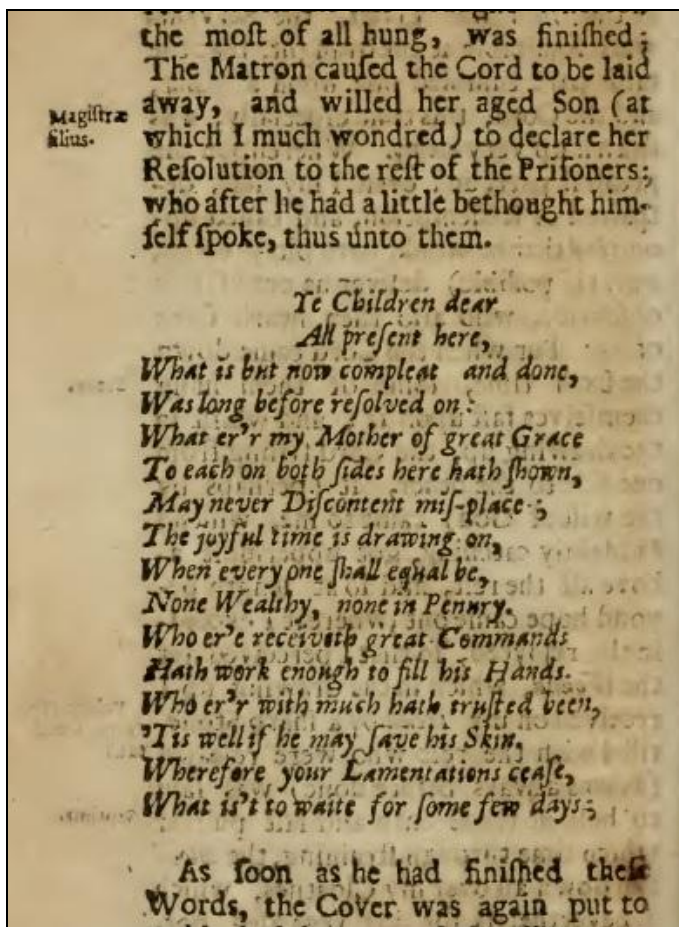 the moſt of all hung, was finiſhed;
The Matron cauſed the Cord to be laid
Magiſtræ
filius.
away, and willed her aged Son (at
which I much wondred) to declare her
Reſolution to the reſt of the Priſoners;
who after he had a little bethought him-
ſelf ſpoke, thus unto them.
Ye Children dear
All preſent here,
What is but now compleat and done,
Was long before reſolved on:
What er'r my Mother of great Grace
To each on both ſides here hath ſhown,
May never Diſcontent miſ-place;
The joyful time is drawing on,
When every one ſhall equal be,
None Wealthy, none in Penury.
Who er'e receiveth great Commands
Hath work enough to fill his Hands.
Who er'r with much hath truſted been,
'Tis well if he may ſave his Skin.
Wherefore your Lamentations ceaſe,
What is't to waite for ſome few days;
As ſoon as he had finiſhed theſe
Words, the Cover was again put to